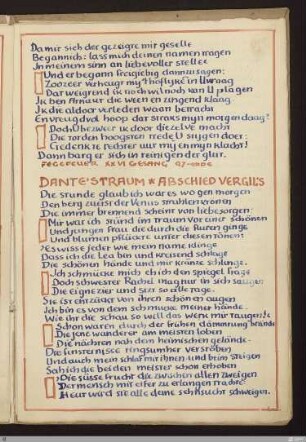 Da mir sich der gezeigte mir geselle
Begann ich: lass mich deinen namen tragen
In meinem sinn an liebevoller stelle
Und er begann freigiebig dann zu sagen:
verheugt my
Dat weigrend ik noch wil noch van U plagen
Ik ben Arnaut die ween en zingend klaag
Ik zie al door verleden waan betracht
En vreugdvol hoop dar straks myn morgen daag
Die ten hoogsten trede U
Gedenk te rechter uur my en myn klacht!
Dann barg er sich in reinigender glut.
FEGEFEUER XXVI GESANG, 97-ende
DANTE'S TRAUM u ABSCHIED VERGIL'S
Die stunde glaub ich war es wo gen morgen
Den berg zuerst der Venus strahlen krönen
Die immer brennend scheint von liebesorgen:
Mir war ich stünd im traum vor einer schönen
Und jungen frau die durch die fluren ginge
Und blumen pflückte unter diesen tönen:
Es wisse jeder wie mein name klinge
Dass ich die Lea bin und kreisend schlage
Die schönen hände und mir kränze schlinge.
Ich schmücke mich eh ich den spiegel frage
Doch schwester Rachel mag nur in sich saugen
Die eigne zier und sizt so alle tage.
Sie ist entzückt von ihren schönen augen
Ich bin es von dem schmucke meiner hände
Wie ihr die schau so will das werk mir taugen!
Schon waren durch der frühen dämmrung brände
Die je am meisten loben
Die nächten nah dem heimischen gelände
Die finsternisse ringsumher verstoben
Und auch mein schlaf mit ihnen: und beim steigen
Sah ich die beiden meister schon erhoben
Die süsse frucht die zwischen allen zweigen
Der mensch mit eifer zu erlangen trachte
Heut wird sie alle deine sehnsucht schweigen.